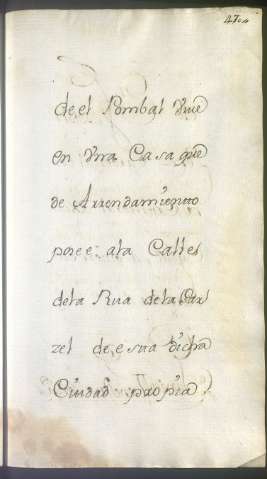 470
de el Pombal Vive
en Vna Casa que
de Arrendamiento
posee ala Calles
dela Rua dela Car
zel de esua dicha
Ciudad propia